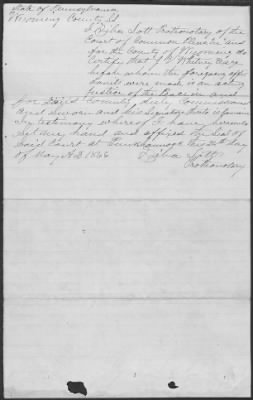 State of Pennsylvania
Wyoming County Ss
I Ziba Lott Prothonotary of the
Court of Common Pleas in and
for the County of Wyoming do
Certify that J. Whitney Esqr
before whom the foregoing affi
davits were made is an acting
Justice of the Peace in and
for Said County duly Commissioned
and sworn and his Signature thereto is genuine
In testimony whereof I have hereunto
set my hand and affixed the Seal of
Said Court at Tunkhannock this day
of May A.D. 1866
Ziba Lott
Prothonotary